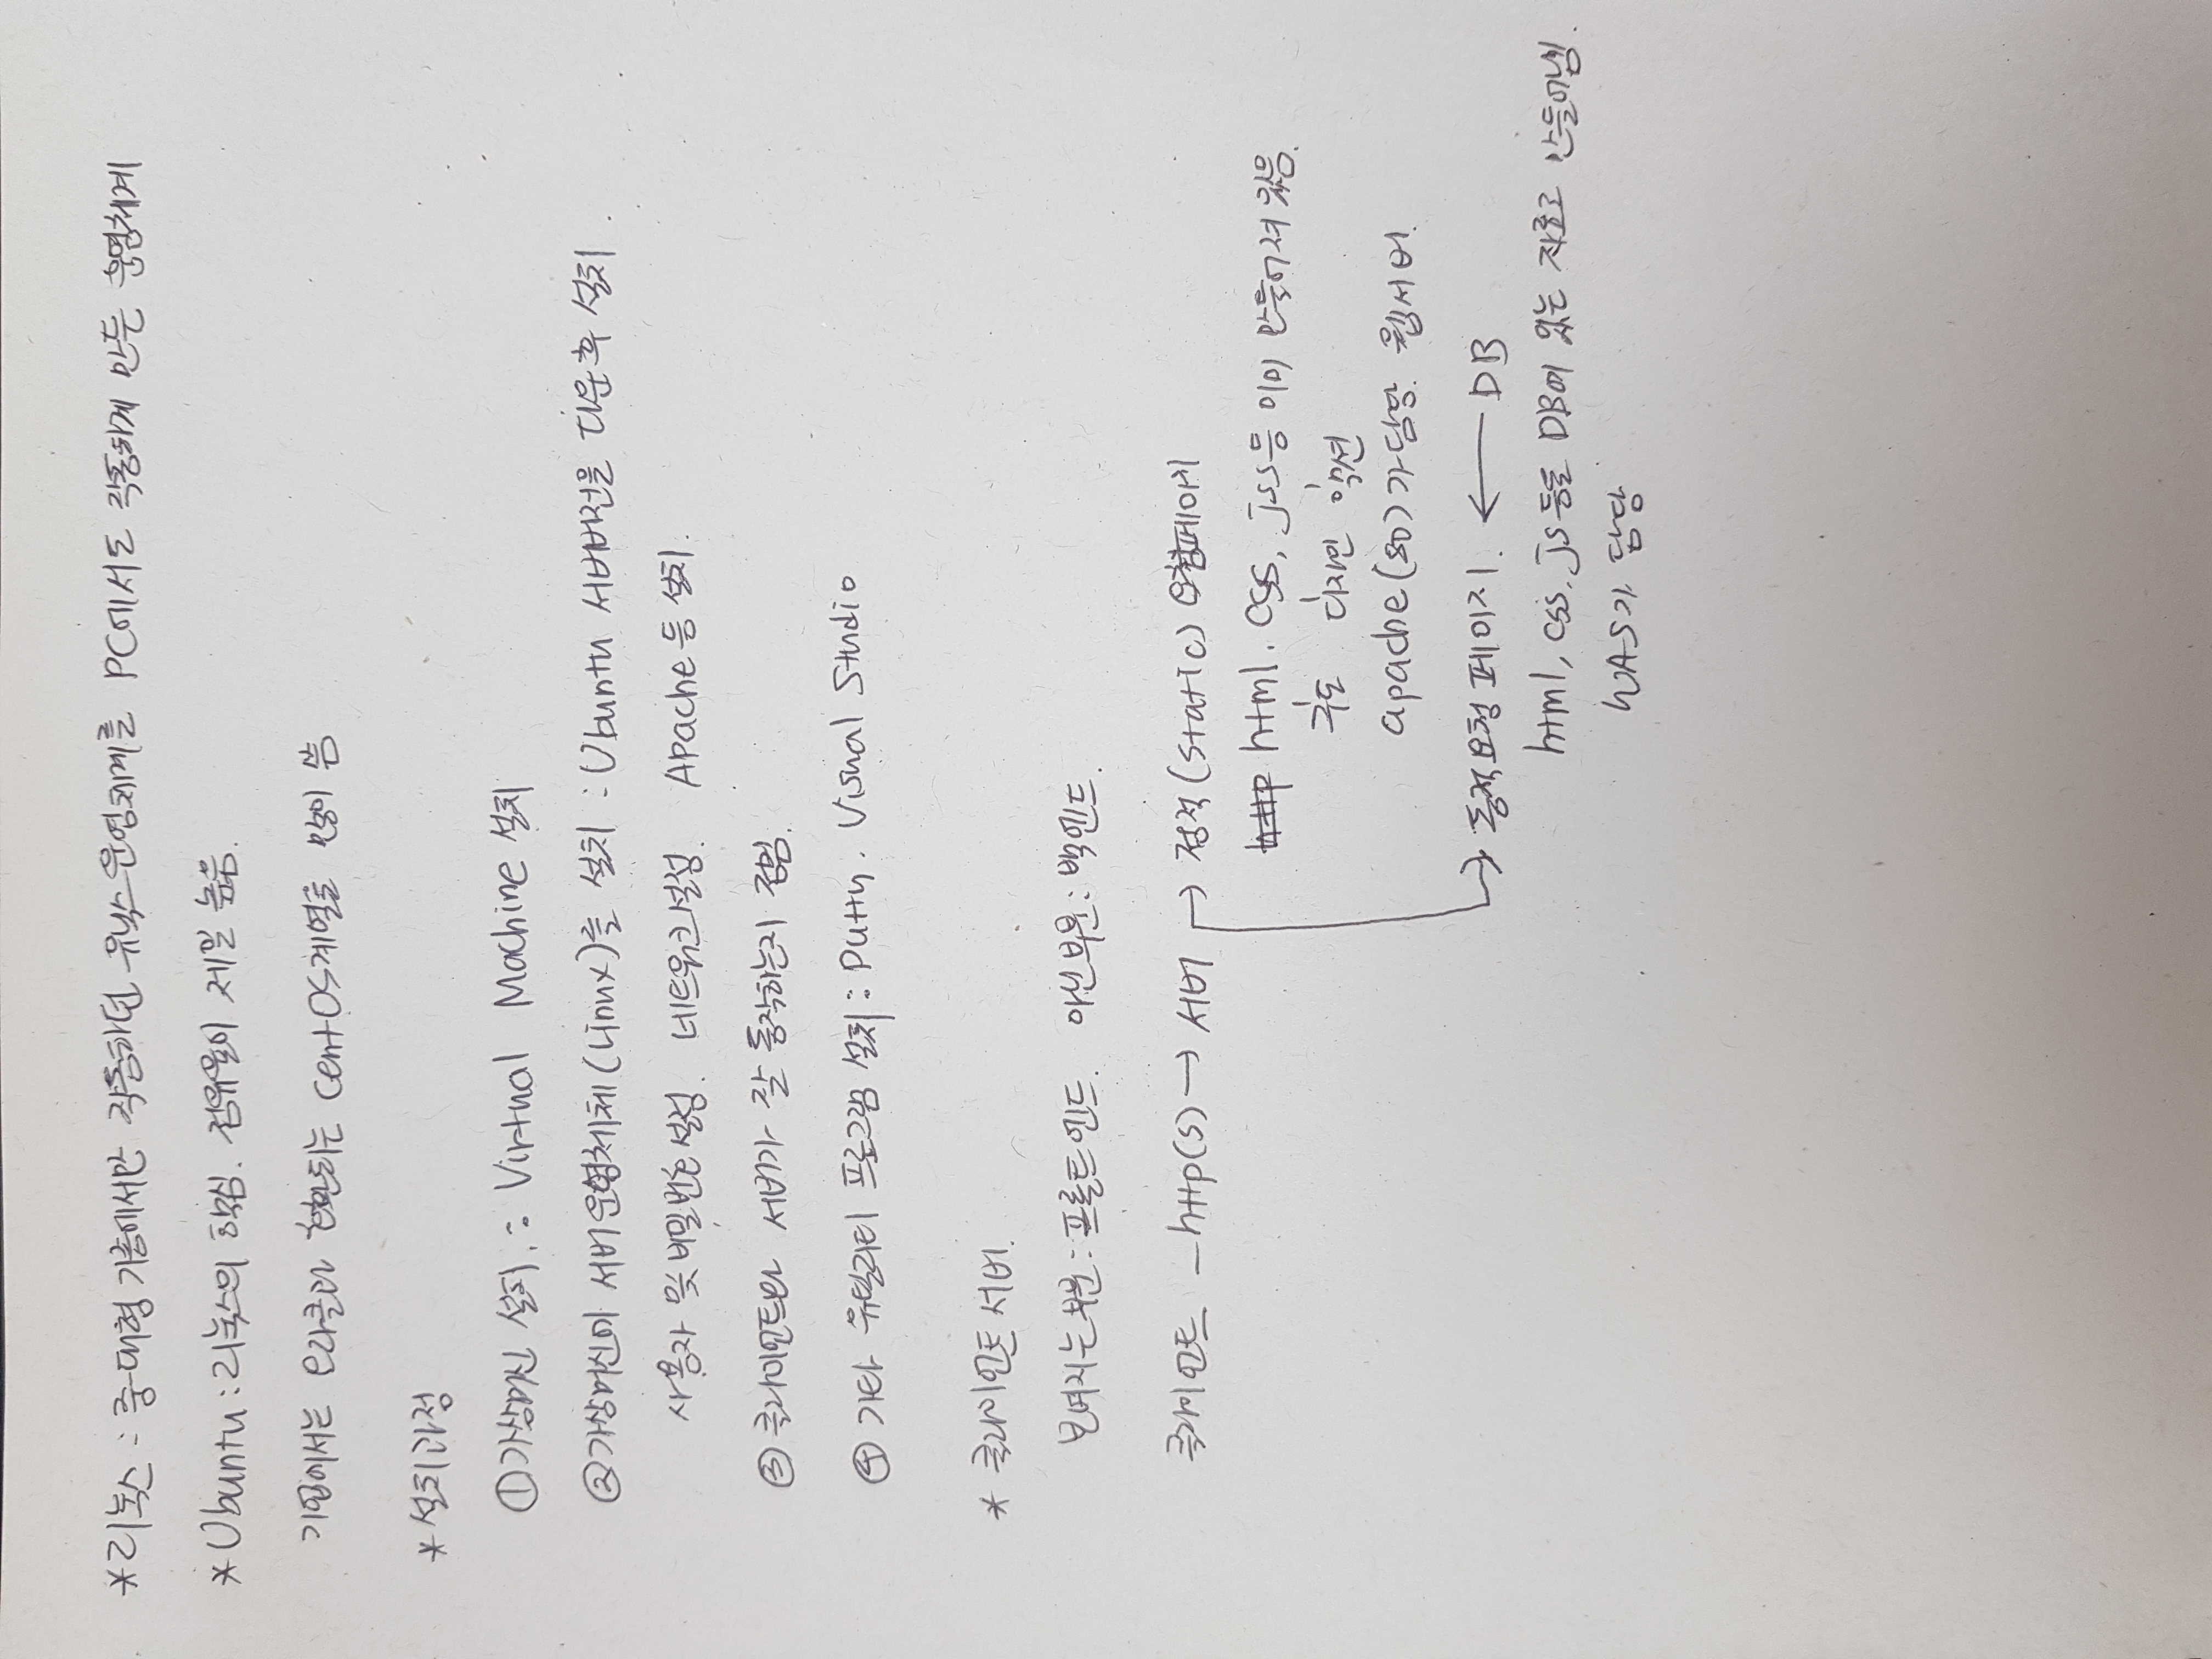 *리눅스 : 중·대형 기종에서만 작동하던 유닉스운영체제를 PC에서도 작동하게 만든 운영체계
*Ubuntu : 리눅스의 핵심. 점유율이 제일 높음.
기업에서는 오라클과 호환되는 centOS계열을 많이 씀
*설치과정
①가상머신 설치. : Virtual Machine 설치
②가상머신에 서버운영체제(Linux)를 설치 : Ubuntu 서버버전을 다운 후 설치.
사용자 및 비밀번호 설정. 네트워크설정. Apache등 설치.
③클라이언트와 서버가 잘 동작하는지 점검.
④기타 유틸리티 프로그램 설치 : Putty. Visual Studio
* 클라이언트 서버.
보여지는부분 : 프론트엔드. 아닌부분 : 백엔드.
클라이언트 — http(s) → 서버 → 정적(static) 요청페이지
html. css, js등 이미 만들어져 있음.
구조 디자인 액션
apache(80)가 담당. 웹서버.
→ 동적요청 페이지. ← DB
html, css. js 등을 DB에 있는 자료로 만들어냄.
WAS가 담당